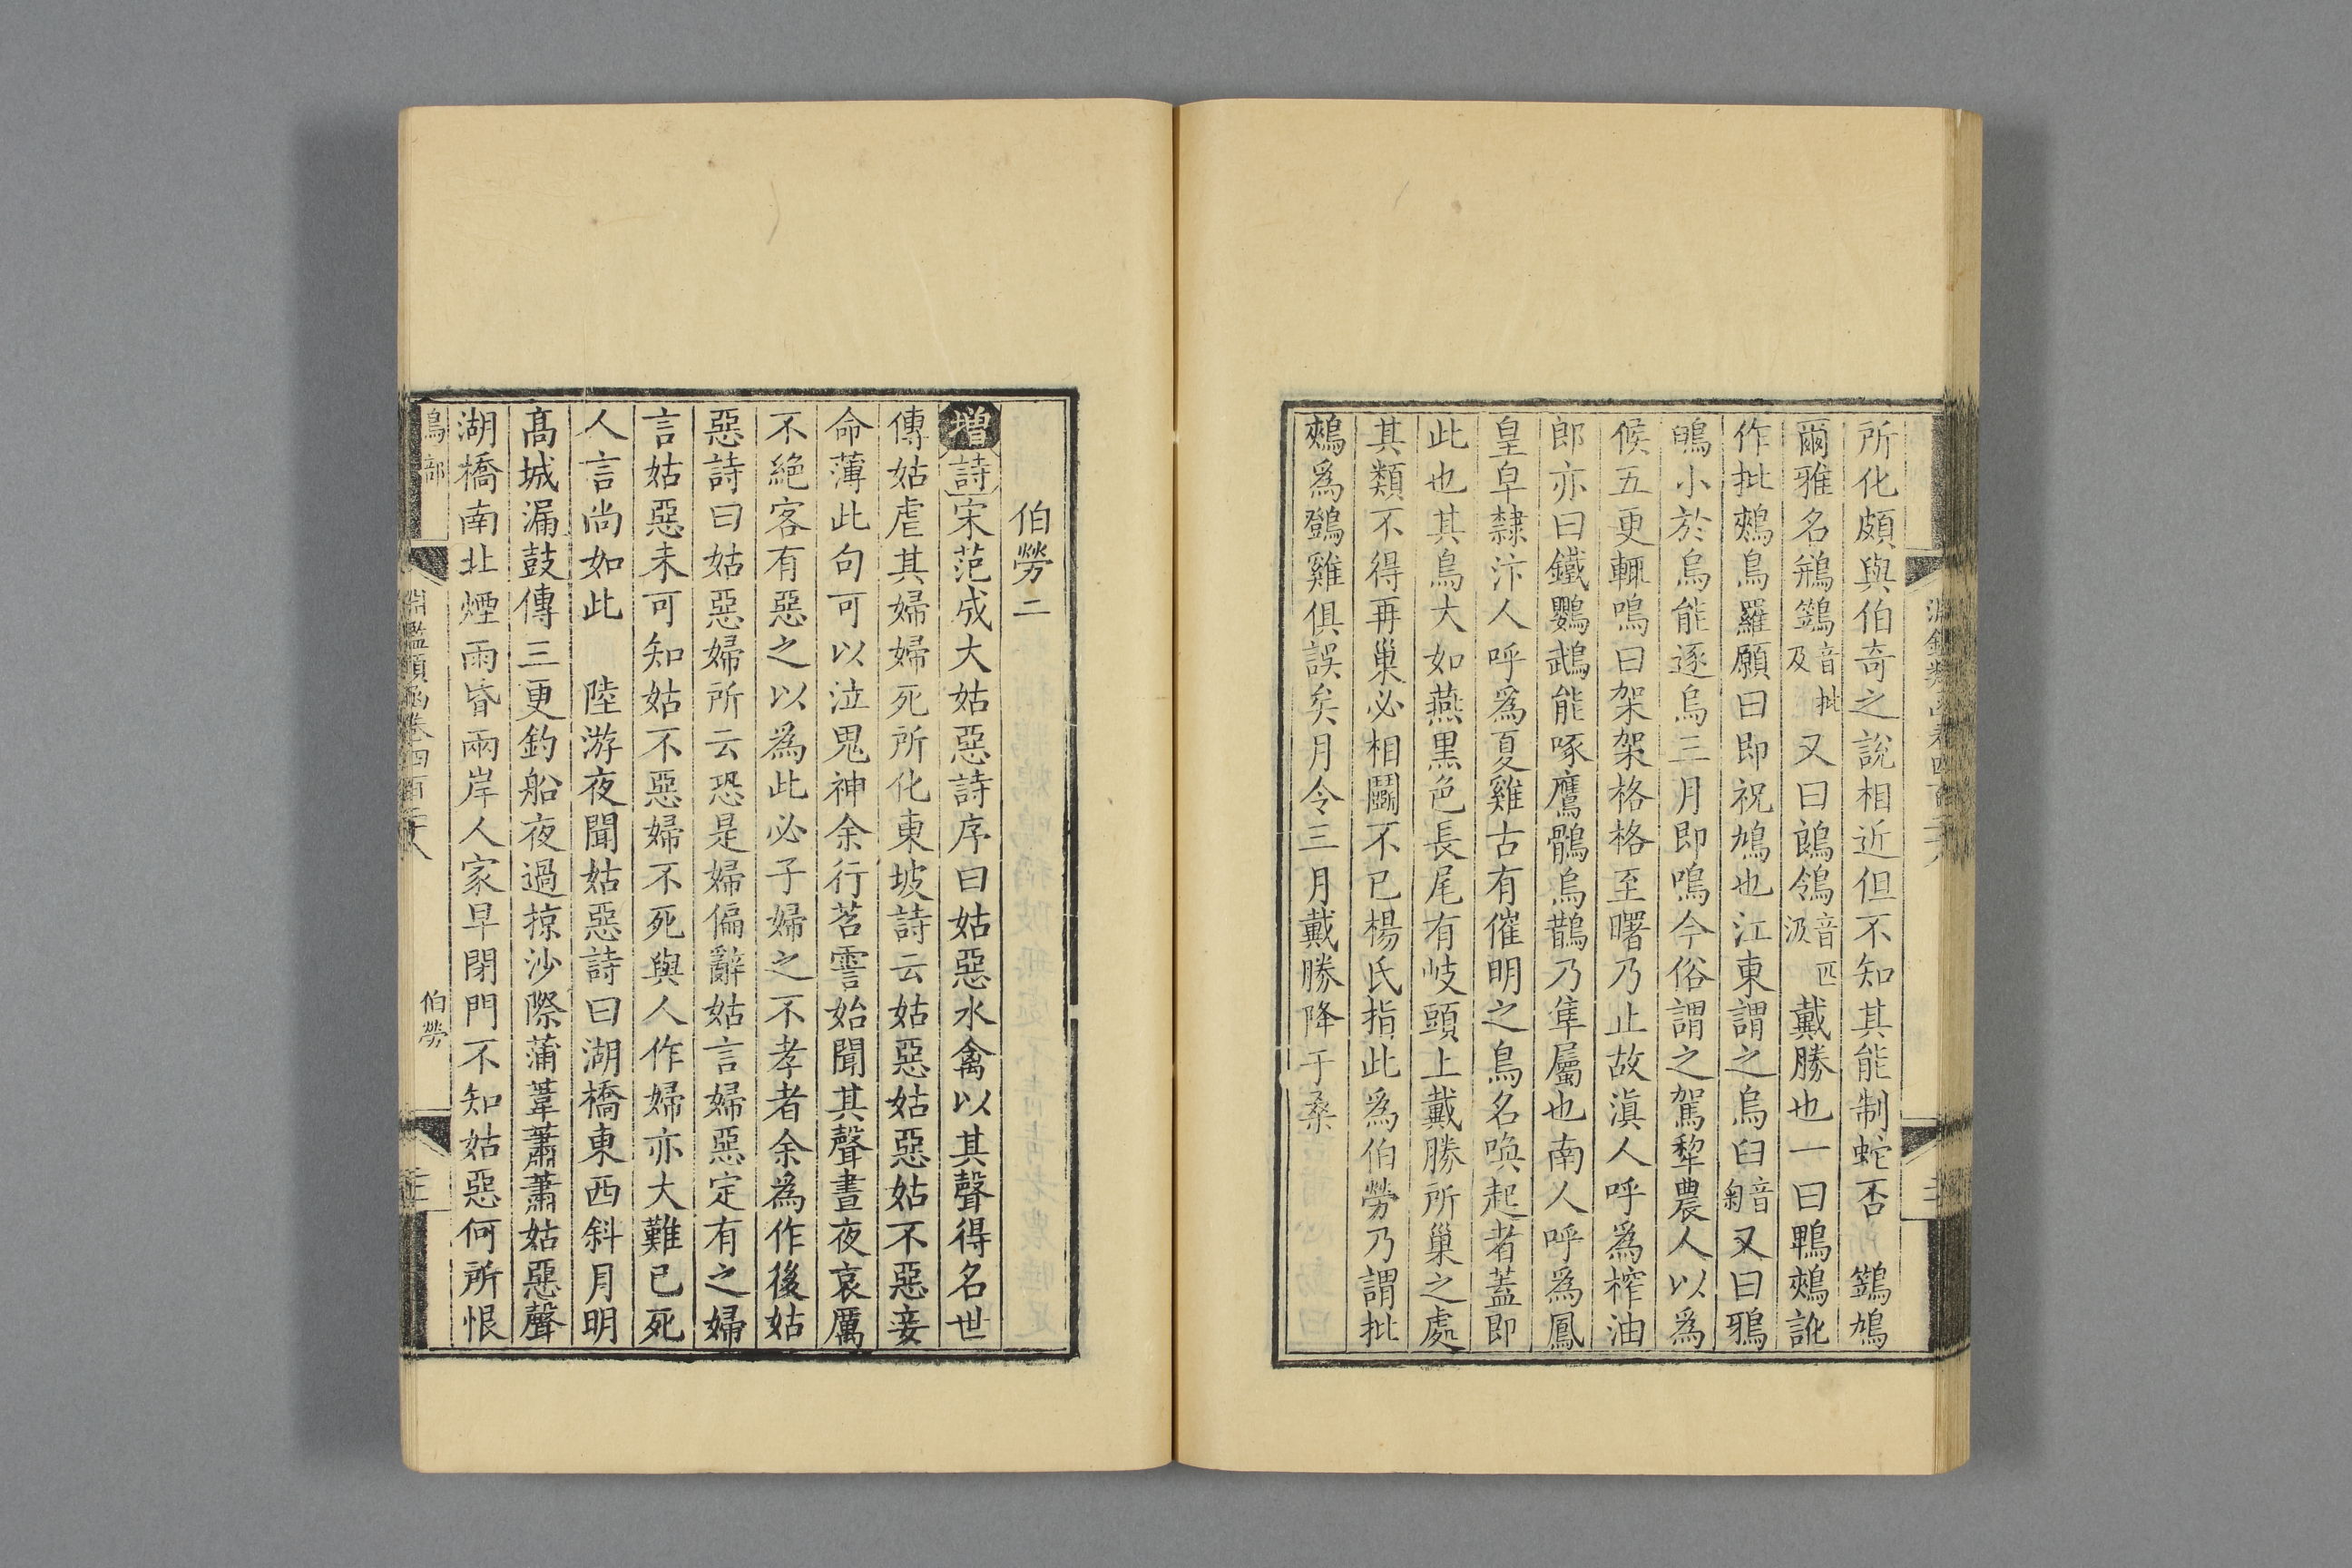 所化頗與伯奇之說相近但不知其能制蛇否　鷑鳩
爾雅名鵧鷑音批及又曰鵖鴔音匹汲戴勝也一曰鵯鵊訛
作批鵊鳥羅願曰即祝鳩也江東謂之烏臼音匊又曰鴉
鴠小於烏能逐烏三月即鳴今俗謂之駕犂農人以為
候五更輒鳴曰架架格格至曙乃止故滇人呼為榨油
郎亦曰鐵鸚鵡能啄鷹鶻烏鵲乃隼屬也南人呼為鳳
皇皁隸汴人呼為夏雞古有催明之鳥名喚起者蓋即
此也其鳥大如燕黑色長尾有岐頭上戴勝所巢之處
其類不得再巢必相鬭不已楊氏指此為伯勞乃謂批
鵊為鷄雞俱誤矣月令三月戴勝降于桑
伯勞二
增詩宋范成大姑惡詩序曰姑惡水禽以其聲得名世
傳姑虐其婦婦死所化東坡詩云姑惡姑惡姑不惡妾
命薄此句可以泣鬼神余行苕霅始聞其聲晝夜哀厲
不絕客有惡之以為此必子婦之不孝者余為作後姑
惡詩曰姑惡婦所云恐是婦偏辭姑言婦惡定有之婦
言姑惡未可知姑不惡婦不死與人作婦亦大難已死
人言尚如此　陸游夜聞姑惡詩曰湖橋東西斜月明
高城漏鼓傳三更釣船夜過掠沙際蒲葦蕭蕭姑惡聲
湖橋南北煙雨昏兩岸人家早閉門不知姑惡何所恨
鳥部　淵鑑類函卷四百二十八　伯勞